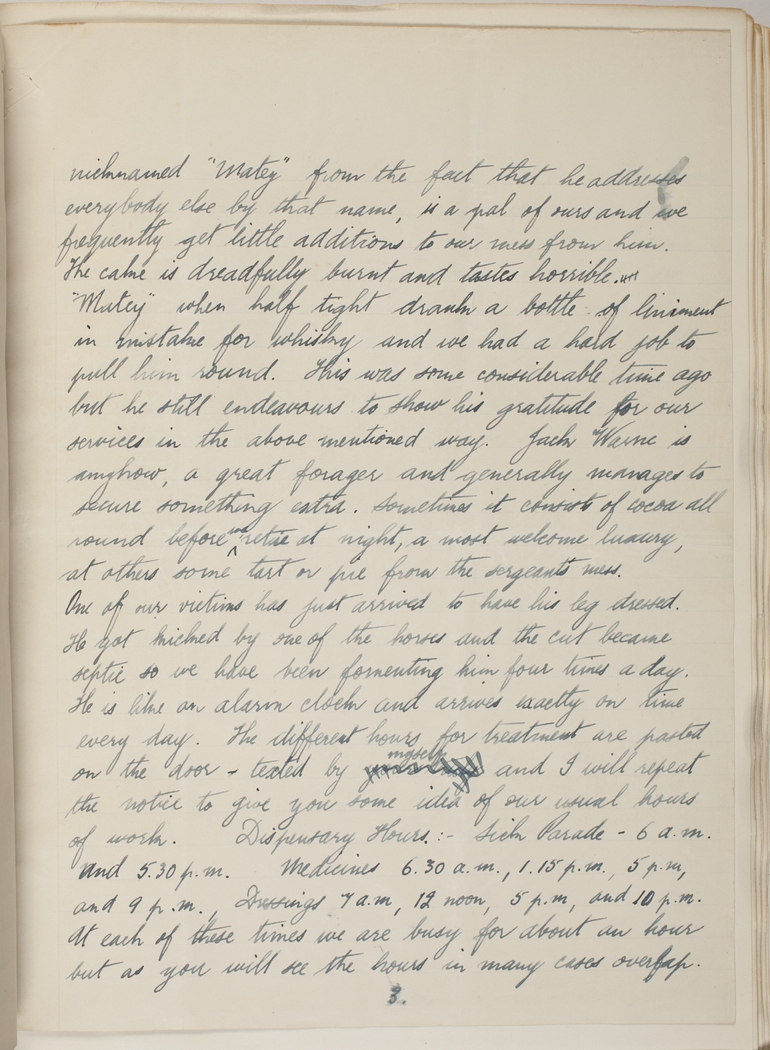 nicknamed "Matey" from the fact that he addresses
everybody else by that name, is a pal of ours and we
frequently get little additions to our mess from him.
The cake is dreadfully burnt and tastes horrible.
"Matey" when half tight drank a bottle of liniment
in mistake for whisky and we had a hard job to
pull him round. This was some considerable time ago
but he still endeavours to show his gratitude for our
services in the above mentioned way. Jack Warne is
anyhow, a great forager and generally manages to
secure something extra. Sometimes it consists of cocoa all
round before we retire at night, a most welcome luxury,
at others some tart or pie from the sergeants mess.
One of our victims has just arrived to have his leg dressed.
He got kicked by one of the horses and the cut became
septic so we have been fomenting him four times a day.
He is like an alarm clock and arrives exactly on time
every day. The different hours for treatment are pasted
on the door - texted by myself and I will repeat
the notice to give you some idea of our usual hours
of work. Dispensary Hours. :- Sick Parade - 6 a.m.
and 5.30 p.m. Medicines 6.30 a.m., 1.15 p.m., 5 p.m,
and 9 p.m., Dressings 7 a.m, 12 noon, 5 p.m, and 10 p.m.
At each of these times we are busy for about an hour
but as you will see the hours in many cases overlap.
3.